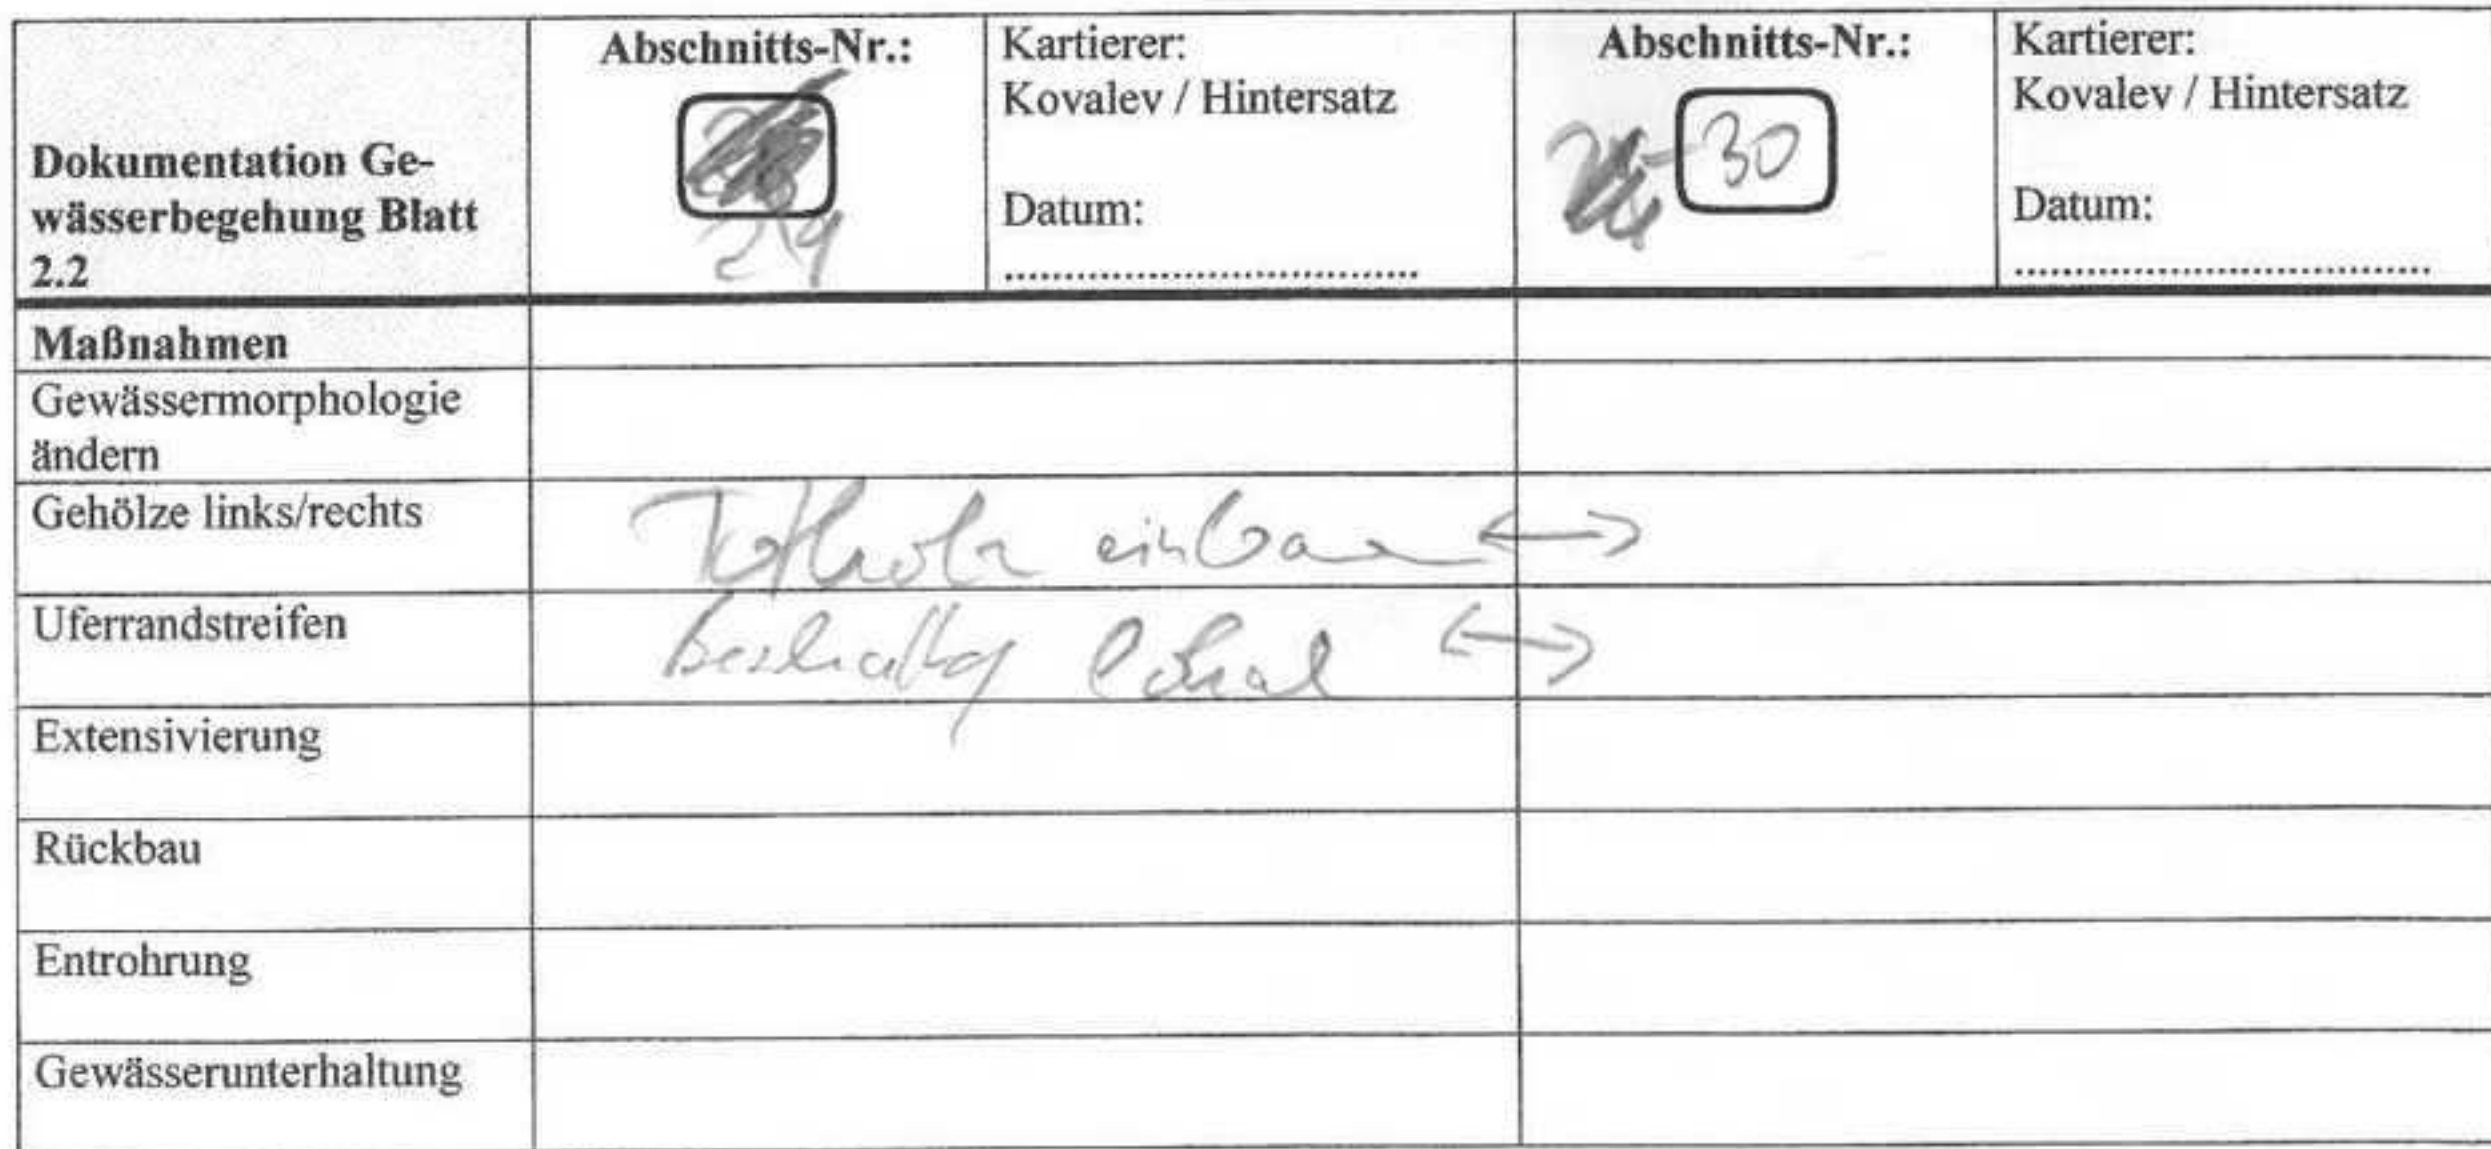 Dokumentation Ge-
wässerbegehung Blatt
2.2
Abschnitts-Nr.:
29
Kartierer:
Kovalev / Hintersatz
Datum:
Abschnitts-Nr.:
30
Kartierer:
Kovalev / Hintersatz
Datum:
Maßnahmen
Gewässermorphologie
ändern
Gehölze links/rechts
Totholz einbauen ↔
Uferrandstreifen
Beschattung lokal ↔
Extensivierung
Rückbau
Entrohrung
Gewässerunterhaltung